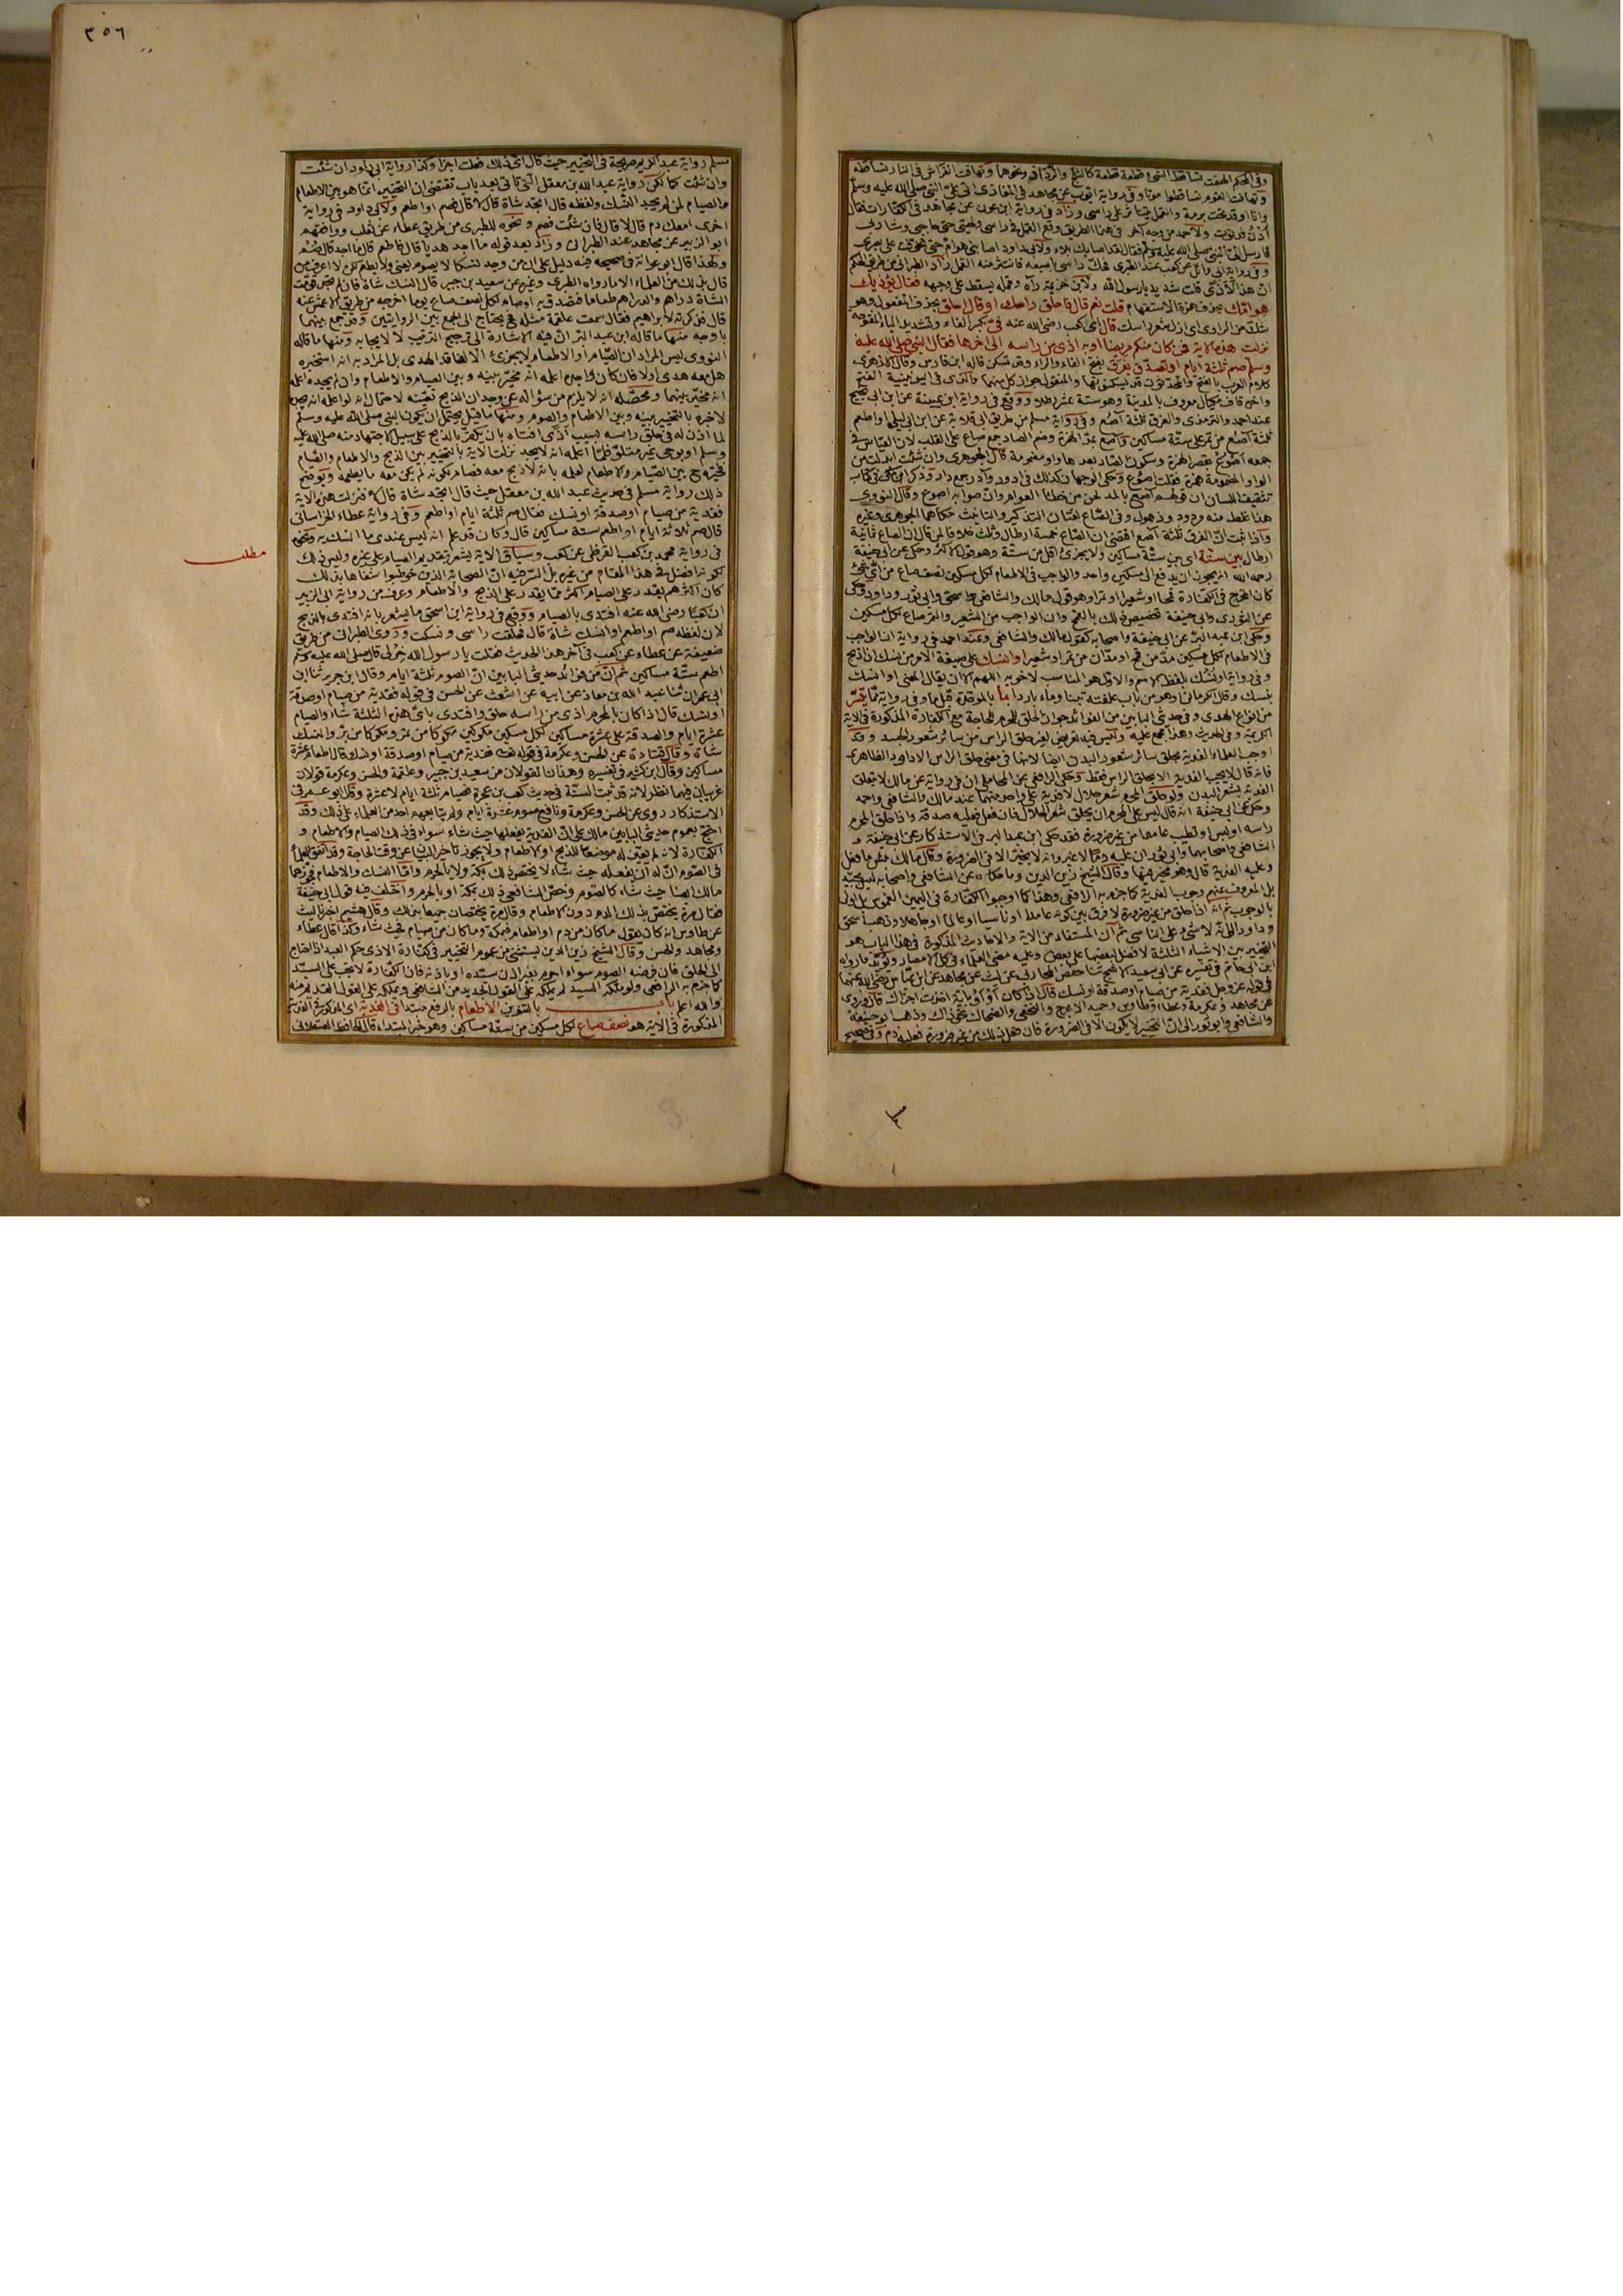 وفي المحكم الهفت تساقط الشيء قطعة قطعة كالثلج والرذاذ ونحوهما وتهافت الفراش في النار تساقط
وتهافت القوم تساقطوا موتا وفي رواية ايوب عن مجاهد في المغازي اتى عليّ النبي صلى الله عليه وسلم
وانا اوقد تحت برمة والقمل يتناثر على راسي وزاد في رواية ابن عون عن مجاهد في الكفارات فقال
ادن فدنوت ولاحمد من وجه آخر في هذا الطريق وقع القمل في راسي ولحيتي حتى حاجبي وشاربي
فارسل اليّ النبي صلى الله عليه وسلم فقال لقد اصابك بلاء ولابي داود اصابني هوام حتى تخوفت على بصري
وفي رواية ابي وائل عن كعب عند الطبري فحك راسي باصبعه فانتثر منه القمل زاد الطبراني من طريق الحكم
ان هذا لأذى قلت شديد يا رسول الله ولابن خزيمة رآه وقمله يسقط على وجهه فقال يؤذيك
هوامّك بحذف همزة الاستفهام قلت نعم قال فاحلق راسك او قال احلق بحذف المفعول وهو
شك من الراوي اي ازل شعر راسك قال اي كعب رضي الله عنه فيّ بكسر الفاء وتشديد الياء المفتوحة
نزلت هذه الآية فمن كان منكم مريضا او به اذى من راسه الى اخرها فقال النبي صلى الله عليه
وسلم صم ثلثة ايام او تصدق بفرق بفتح الفاء والراء وقد تسكن قاله ابن فارس وقال الازهري
كلام العرب بالفتح والمحدثون قد يسكنونها والمنقول جواز كل منهما والذي في اليونينية الفتح
واخره قاف مكيال معروف بالمدينة وهو ستة عشر رطلا ووقع في رواية ابن عيينة عن ابن ابي نجيح
عند احمد والترمذي والفرق ثلثة آصع وفي رواية مسلم من طريق ابي قلابة عن ابن ابي ليلى او اطعم
ثلثة آصع من تمر على ستة مساكين وآصع بمد الهمزة وضم الصاد جمع صاع على القلب لان القياس في
جمعه أصْوُع بقصر الهمزة وسكون الصاد بعدها واو مضمومة قال الجوهري وان شئت ابدلت من
الواو المضمومة همزة فقلت اصؤع وحكي الوجهان كذلك في ادور وآدر جمع دار وذكر ابن مكي في كتاب
تثقيف اللسان ان قولهم آصع بالمد لحن من خطأ العوام وان صوابه اصوع وقال النووي
هذا غلط منه وذهول وفي الصاع لغتان التذكير والتانيث حكاهما الجوهري وغيره
واذا ثبت انّ الفرق ثلثة آصع اقتضى ان الصاع خمسة ارطال وثلث خلافا لمن قال ان الصاع ثمانية
ارطال بين ستة اي بين ستة مساكين ولا يجزئ اقل من ستة وهو قول الاكثر وحكي عن ابي حنيفة
رحمه الله انه يجوز ان يدفع الى مسكين واحد والواجب في الاطعام لكل مسكين نصف صاع من اي شئ
كان المخرج في الكفارة قمحا او شعيرا او تمرا وهو قول مالك والشافعي واسحق وابي ثور وداود وحكي
عن الثوري وابي حنيفة تخصيص ذلك بالقمح وان الواجب من الشعير والتمر صاع لكل مسكين
وحكى ابن عبد البر عن ابي حنيفة واصحابه كقول مالك والشافعي وعند احمد في رواية ان الواجب
في الاطعام لكل مسكين مدّ من قمح او مدّان من تمر او شعير او انسك على صيغة الامر من نسك اذا ذبح
وفي رواية او نسك بلفظ الاسم والاول هو المناسب لاخويه اللهم الا ان يقال المعنى او انسك
بنسك وقال الكرماني او هو من باب علفته تبنا وماء باردا بما بالموحدة قبل ما وفي رواية مما تيسّر
من انواع الهدي وفي حديثي البابين من الفوائد جواز الحلق للمحرم للحاجة مع الكفارة المذكورة في الاية
الكريمة وفي الحديث وهذا مجمع عليه وليس فيه تعرض لغير حلق الراس من سائر شعور الجسد وقد
اوجب العلماء الفدية بحلق سائر شعور البدن ايضا لانها في معنى حلق الراس الا داود الظاهري
فانه قال لا يجب الفدية الا بحلق الراس فقط وحكى الرافعي عن المحاملي ان في رواية عن مالك لا يتعلق
الفدية بشعر البدن ولو حلق المحرم شعر حلال لا فدية على واحد منهما عند مالك والشافعي واحمد
وحكي عن ابي حنيفة انه قال ليس على المحرم ان يحلق شعر الحلال فان فعل فعليه صدقة واذا حلق المحرم
راسه او لبس او تطيب عامدا من غير ضرورة فقد حكى ابن عبد البر في الاستذكار عن ابي حنيفة و
الشافعي واصحابهما وابي ثور ان عليه دما لا غير وانه لا يخير الا في الضرورة وقال مالك بئس ما فعل
وعليه الفدية قال وهو مخير فيها وقال الشيخ زين الدين وما حكاه عن الشافعي واصحابه ليس بجيد
بل المعروف عنهم وجوب الفدية كما جزم به الرافعي وهذا كما اوجبوا الكفارة في اليمين الغموس بل اولى
بالوجوب ثم انه اذا حلق من غير ضرورة لا فرق بين كونه عامدا او ناسيا او عالما او جاهلا وذهب اسحق
وداود الى انه لا شيء على الناسي ثم ان المستفاد من الاية والاحاديث المذكورة في هذا الباب هو
التخيير بين الاشياء الثلثة لا فضل لبعضها على بعض وعليه مضى العلماء في كل الامصار ويؤيد ما رواه
ابن ابي حاتم في تفسيره عن ابي سعيد الاشج ثنا حفص المحاربي عن ليث عن مجاهد عن ابن عباس رضي الله عنهما
في قوله عز وجل ففدية من صيام او صدقة او نسك قال اذا كان أو أو بأية اخذت اجزأك قال وروي
عن مجاهد وعكرمة وعطاء وطاوس وحميد الاعرج والنخعي والضحاك نحو ذلك وذهب ابو حنيفة
والشافعي وابو ثور الى ان التخيير لا يكون الا في الضرورة فان فعل ذلك من غير ضرورة فعليه دم وفي صحيح
٣٥٦
مسلم رواية عبد الكريم صريحة في التخيير حيث قال اي ذلك فعلت اجزأ وكذا رواية ابي داود ان شئت
وان شئت كما لكن رواية عبد الله بن معقل الآتية في بعد باب تقتضي ان التخيير انما هو بين الاطعام
والصيام لمن لم يجد النسك ولفظه قال اتجد شاة قال لا قال فصم او اطعم ولابي داود في رواية
اخرى امعك دم قال لا قال فان شئت فصم ونحوه للطبري من طريق عطاء عن كعب ووافقهم
ابو الزبير عن مجاهد عند الطبراني وزاد بعد قوله ما اجد هديا قال فاطعم قال ما اجد قال صُم
ولهذا قال ابو عوانة في صحيحه فيه دليل على ان من وجد نسكا لا يصوم يعني ولا يطعم لكن لا اعرف من
قال بذلك من العلماء الا ما رواه الطبري وغيره عن سعيد بن جبير قال النسك شاة فان لم يجد قوّمت
الشاة دراهم والدراهم طعاما فتصدق به او صام لكل نصف صاع يوما اخرجه من طريق الاعمش عنه
قال فذكرته لابراهيم فقال سمعت علقمة مثله فحينئذ يحتاج الى الجمع بين الروايتين وقد جمع بينهما
باوجه منها ما قاله ابن عبد البر انّ فيه الاشارة الى ترجيح الترتيب لا لايجابه ومنها ما قاله
النووي ليس المراد ان الصيام او الاطعام لا يجزئ الا لفاقد الهدي بل المراد به انه استخبره
هل معه هدي او لا فان كان واجده اعلمه انه مخير بينه وبين الصيام والاطعام وان لم يجده اعلمه
انه مخيّر بينهما ومحصّله انه لا يلزم من سؤاله عن وجدان الذبح تعيّنه لاحتمال انه لو اعلمه انه يجده
لاخبره بالتخيير بينه وبين الاطعام والصوم ومنها ما قيل يحتمل ان يكون النبي صلى الله عليه وسلم
لما اذن له في حلق راسه بسبب الاذى افتاه بان يكفر بالذبح على سبيل الاجتهاد منه صلى الله عليه
وسلم او بوحي غير متلوّ فلما اعلمه انه لا يجد نزلت الآية بالتخيير بين الذبح والاطعام والصيام
فخيّره ح بين الصيام والاطعام لعلمه بانه لا ذبح معه فصام لكونه لم يكن معه ما يطعمه ويوضح
ذلك رواية مسلم في حديث عبد الله بن معقل حيث قال اتجد شاة قال لا فنزلت هذه الاية
ففدية من صيام او صدقة او نسك فقال صم ثلثة ايام او اطعم وفي رواية عطاء الخراساني
قال صم ثلاثة ايام او اطعم ستة مساكين قال وكان قد علم انه ليس عندي ما انسك به ونحوه
في رواية محمد بن كعب القرظي عن كعب وسياق الاية يشعر بتقديم الصيام على غيره وليس ذلك
مطلب
لكونه افضل في هذا المقام من غيره بل السر فيه انّ الصحابة الذين خوطبوا شفاها بذلك
كان اكثرهم يقدر على الصيام اكثر مما يقدر على الذبح والاطعام وعرف من رواية ابي الزبير
ان كعبًا رضي الله عنه افتدى بالصيام ووقع في رواية ابن اسحق ما يشعر بانه افتدى بالذبح
لان لفظه صم او اطعم او انسك شاة قال فحلقت راسي ونسكت وروى الطبراني من طريق
ضعيفة عن عطاء عن كعب في آخر هذا الحديث فقلت يا رسول الله خِرْ لي قال صلى الله عليه وسلم
اطعم ستة مساكين ثم انّ من فوائد حديثي البابين انّ الصوم ثلثة ايام وقال ابن جرير ثنا ابن
ابي عمران ثنا عبيد الله بن معاذ عن ابيه عن اشعث عن الحسن في قوله ففدية من صيام او صدقة
او نسك قال اذا كان بالمحرم اذى من راسه حلق وافتدى بايّ هذه الثلثة شاء والصيام
عشرة ايام والصدقة على عشرة مساكين لكل مسكين مكوكين مكوكا من تمر ومكوكا من برّ والنسك
شاة وقال قتادة عن الحسن وعكرمة في قوله تعالى ففدية من صيام او صدقة او نسك قال اطعام عشرة
مساكين وقال ابن كثير في تفسيره وهذان القولان من سعيد بن جبير وعلقمة والحسن وعكرمة قولان
غريبان فيهما نظر لانه قد ثبت السنّة في حديث كعب بن عجرة بصيام ثلثة ايام لا عشرة وقال ابو عمر في
الاستذكار روي عن الحسن وعكرمة ونافع صوم عشرة ايام ولم يتابعهم احد من العلماء على ذلك وقد
احتج بعموم حديثي البابين مالك على انّ الفدية يفعلها حيث شاء سواء في ذلك الصيام والاطعام و
الكفارة لانه لم يعيّن له موضعا للذبح او الاطعام ولا يجوز تاخير البيان عن وقت الحاجة وقد اتفق العلماء
في الصوم انّ له ان يفعله حيث شاء لا يختص ذلك بمكة ولا بالحرم وامّا النسك والاطعام فجوزهما
مالك ايضا حيث شاء كالصوم وخصّ الشافعي ذلك بمكة او بالحرم واختلف فيه قول ابي حنيفة
فقال مرة يختصّ بذلك الدم دون الاطعام وقال مرة يختصان جميعا بذلك وقال هشيم اخبرنا ليث
عن طاوس انه كان يقول ما كان من دم او اطعام فبمكة وما كان من صيام فحيث شاء وكذا قال عطاء
ومجاهد والحسن وقال الشيخ زين الدين يستثنى من عموم التخيير في كفارة الاذى حكم العبد اذا احتاج
الى الحلق فان فرضه الصوم سواء احرم بغير اذن سيّده او باذنه فان الكفّارة لا تجب على السيّد
كما جزم به الرافعي ولو ملكه السيد لم يملكه على القول الجديد من الشافعي ويملكه على القول القديم
والله اعلم باب بالتنوين الاطعام بالرفع مبتدأ في الفدية اي المذكورة في الفدية
المذكورة في الاية هو نصف صاع لكل مسكين من ستة مساكين وهو خبر المبتداء قال الحافظ العسقلاني